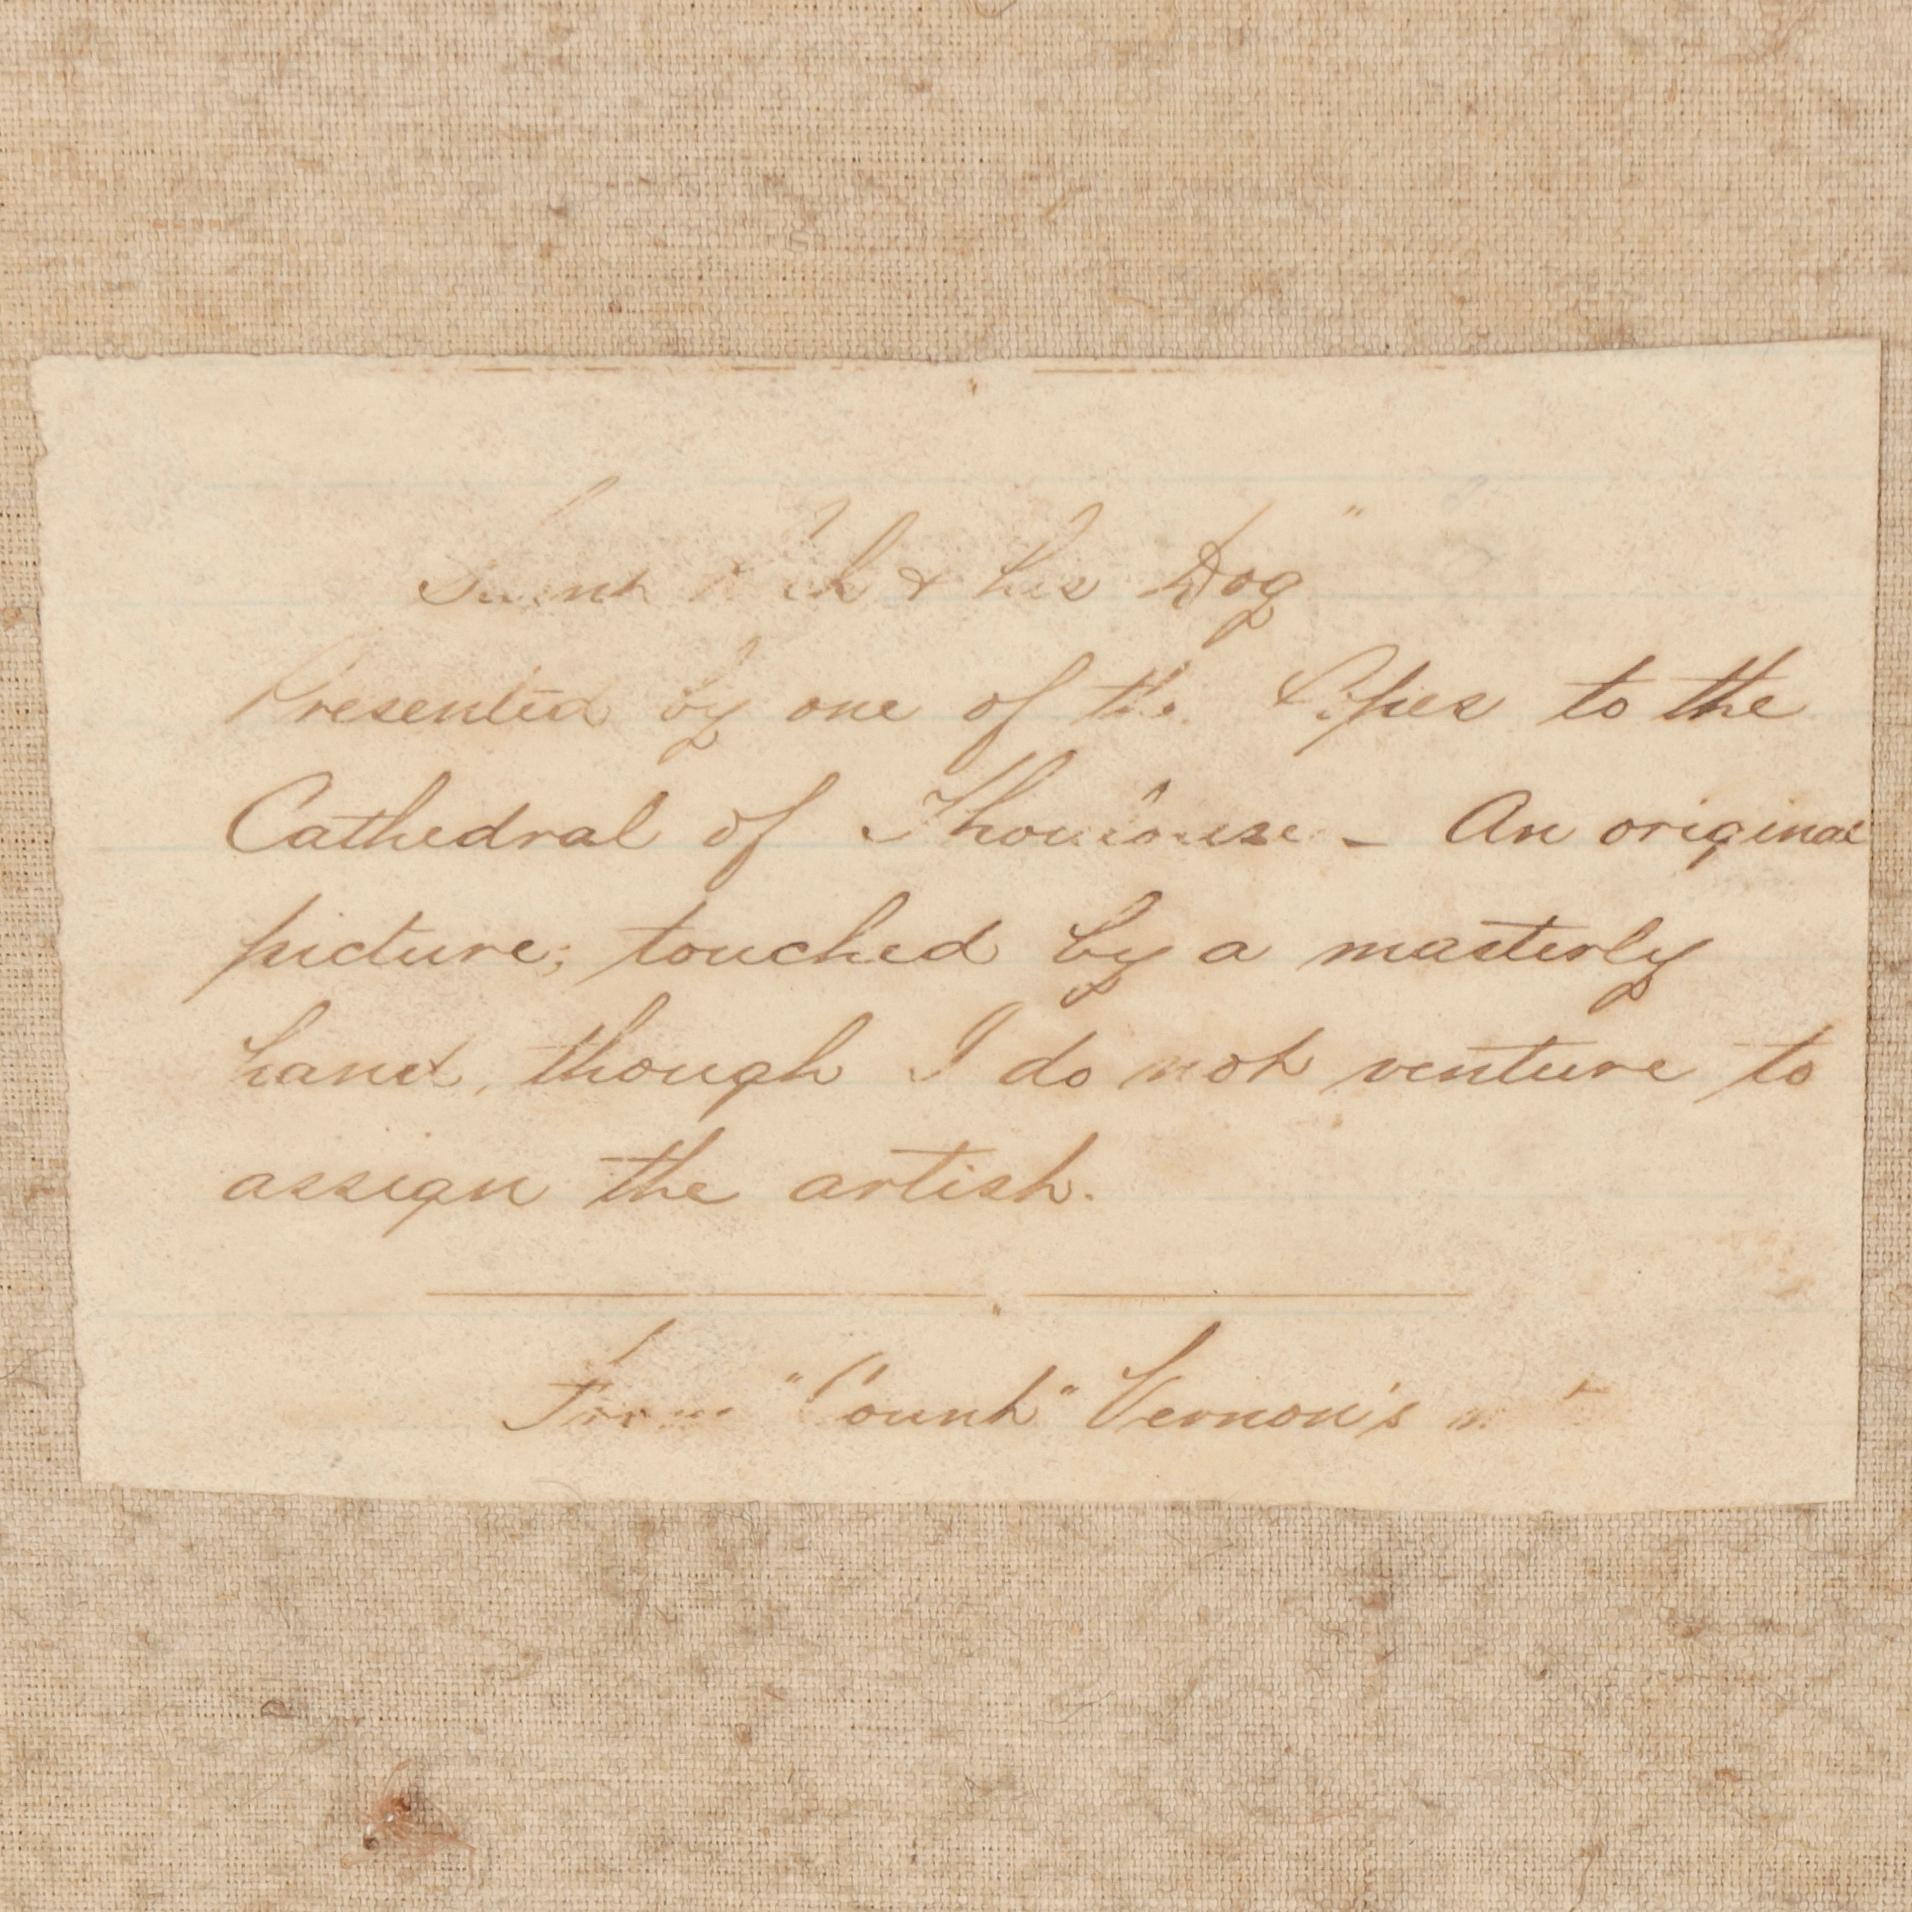 Saint & his Dog"
Presented by one of the Popes to the
Cathedral of - An original
picture; touched by a masterly
hand, though I do not venture to
assign the artist.
From "Count" Vernon's